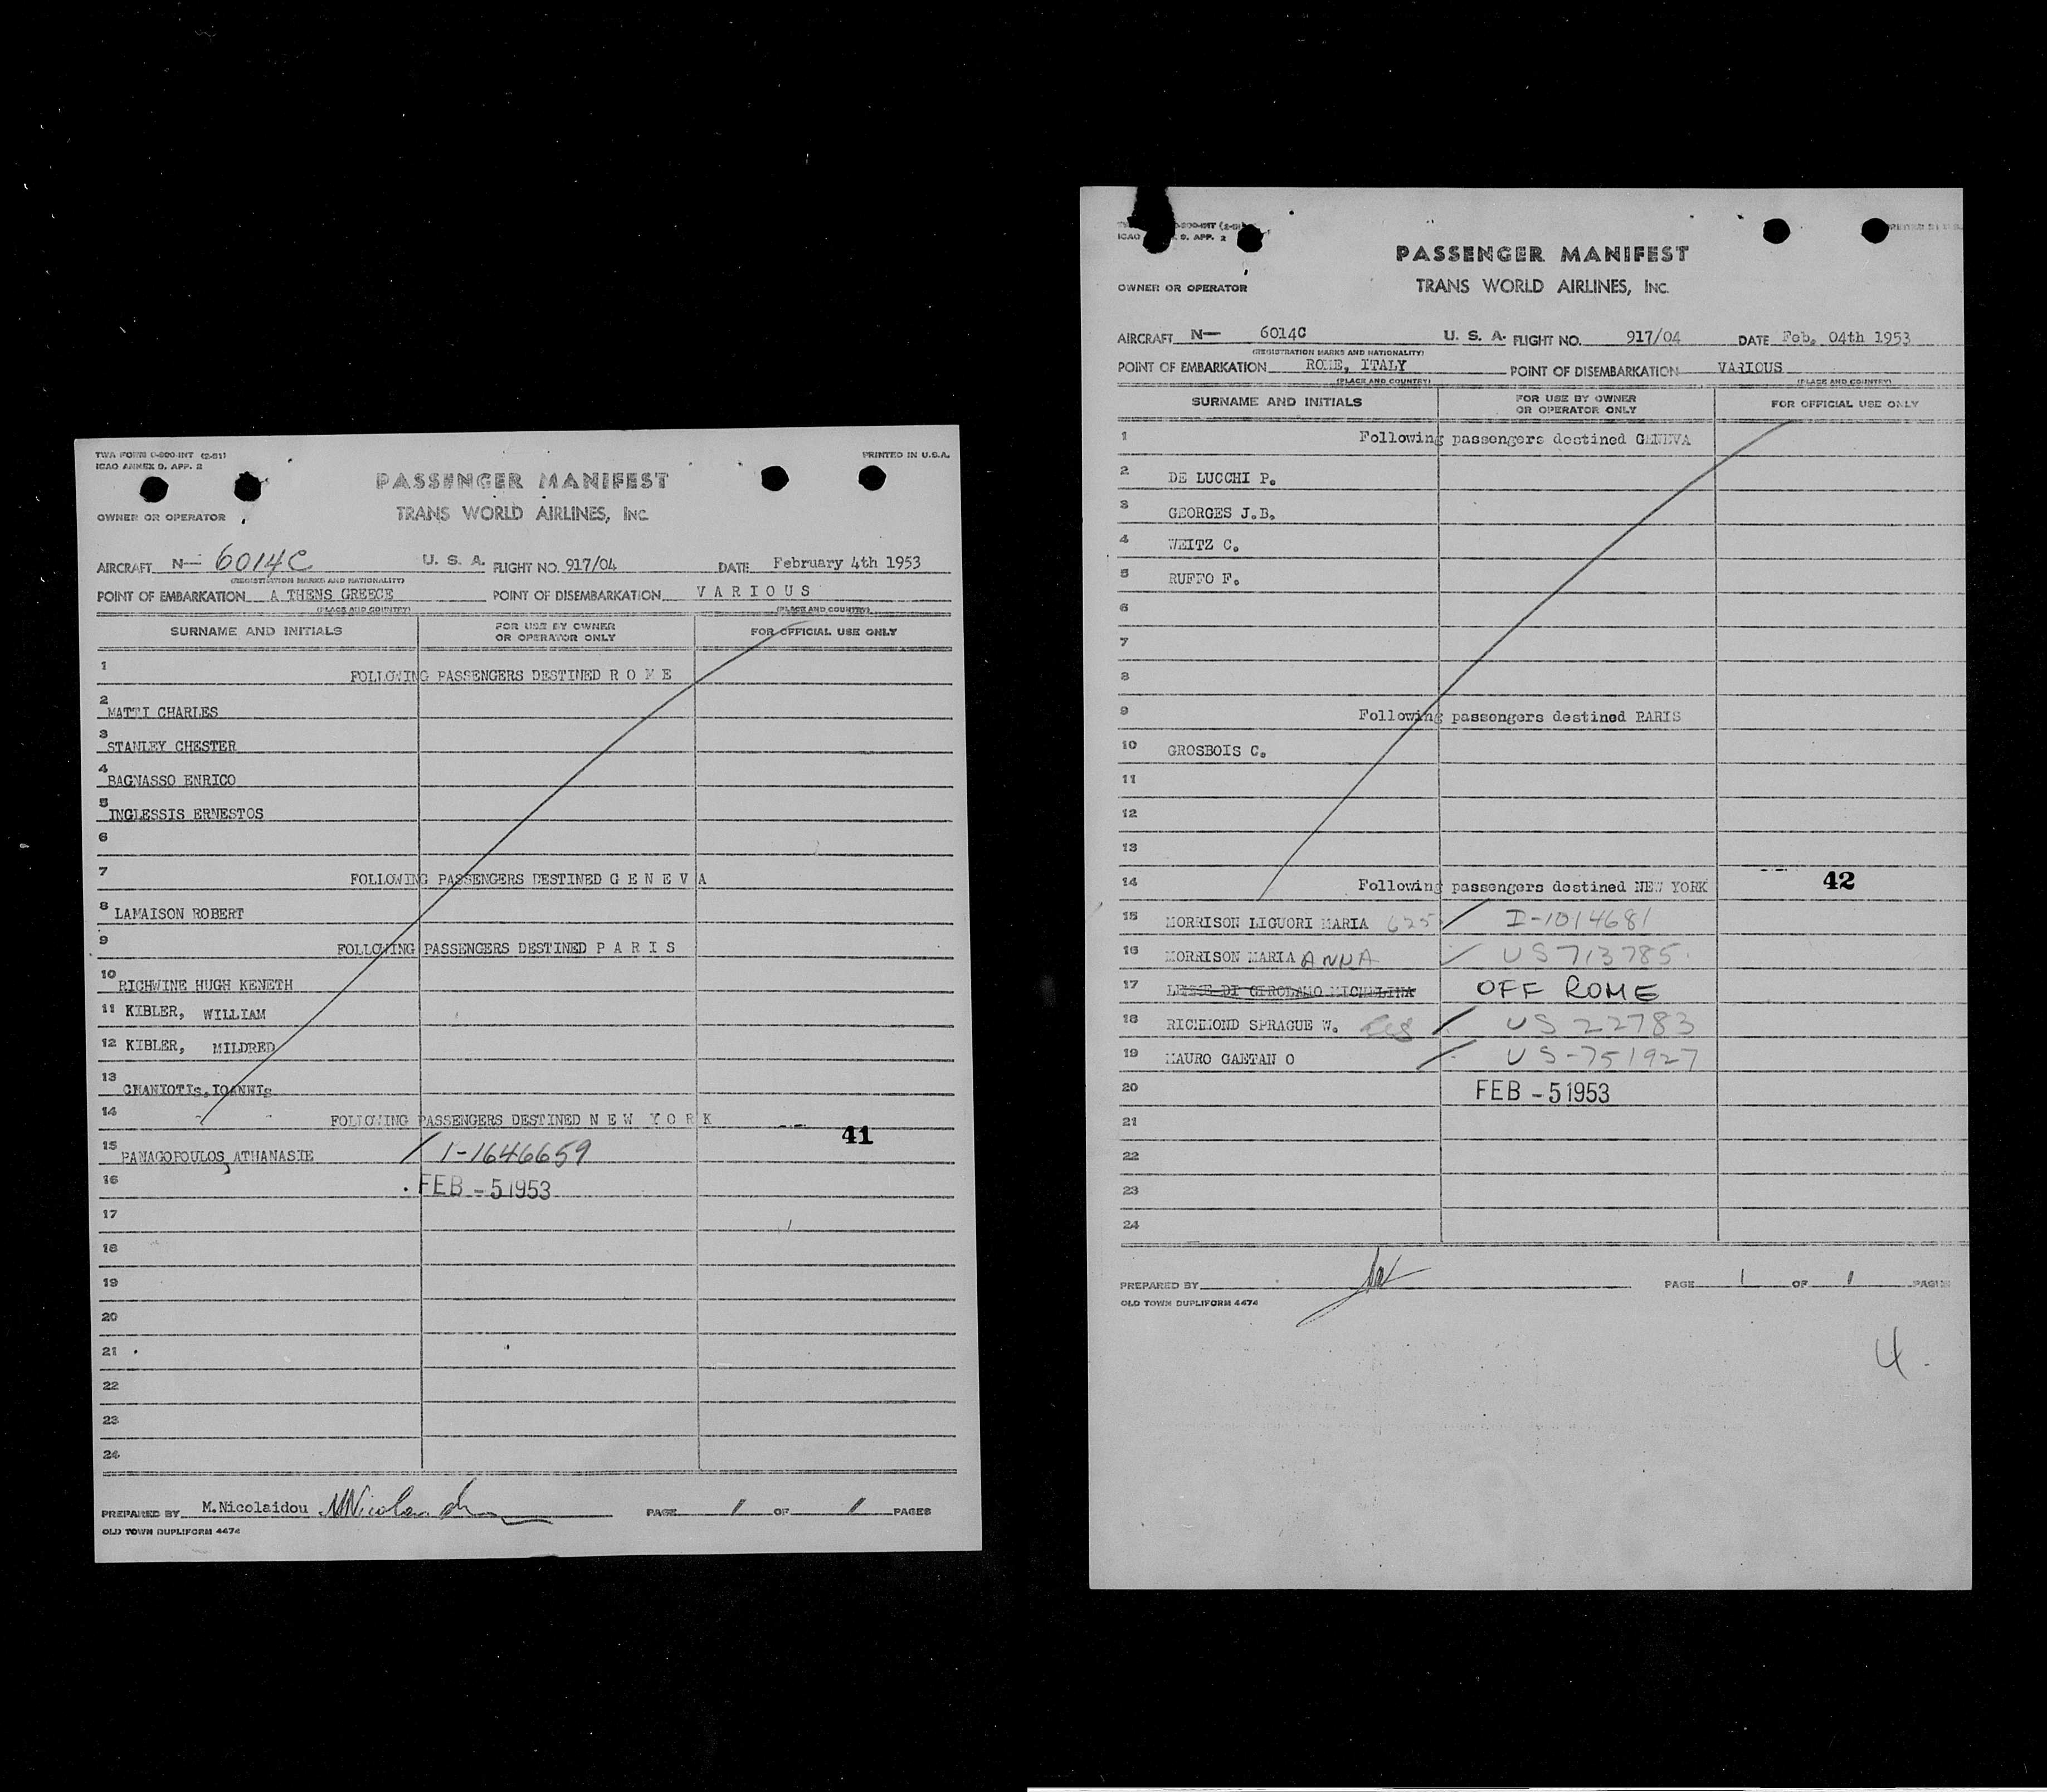 TWA FORM O-800-INT (2-51)
ICAO ANNEX 9. APP. 2
PRINTED IN U.S.A.
PASSENGER MANIFEST
OWNER OR OPERATOR
TRANS WORLD AIRLINES, INC.
AIRCRAFT N— 6014C U. S. A. FLIGHT NO. 917/04 DATE February 4th 1953
(REGISTRATION MARKS AND NATIONALITY)
POINT OF EMBARKATION A THENS GREECE POINT OF DISEMBARKATION V A R I O U S
(PLACE AND COUNTRY) (PLACE AND COUNTRY)
SURNAME AND INITIALS FOR USE BY OWNER OR OPERATOR ONLY FOR OFFICIAL USE ONLY
1 FOLLOWING PASSENGERS DESTINED R O M E
2 MATTI CHARLES
3 STANLEY CHESTER
4 BAGNASSO ENRICO
5 INGLESSIS ERNESTOS
6
7 FOLLOWING PASSENGERS DESTINED G E N E V A
8 LAMAISON ROBERT
9 FOLLOWING PASSENGERS DESTINED P A R I S
10 RICHWINE HUGH KENETH
11 KIBLER, WILLIAM
12 KIBLER, MILDRED
13 CHANIOTIs,IOANNIs
14 FOLLOWING PASSENGERS DESTINED N E W Y O R K
41
15 PANAGOPOULOS, ATHANASIE / I-1646659
16 FEB - 5 1953
17
18
19
20
21
22
23
24
PREPARED BY M.Nicolaidou PAGE 1 OF 1 PAGES
OLD TOWN DUPLIFORM 4474
0-800-INT (2-51)
ICAO 9. APP. 2
PASSENGER MANIFEST
OWNER OR OPERATOR
TRANS WORLD AIRLINES, INC.
AIRCRAFT N— 6014C U. S. A. FLIGHT NO. 917/04 DATE Feb. 04th 1953
(REGISTRATION MARKS AND NATIONALITY)
POINT OF EMBARKATION ROME, ITALY POINT OF DISEMBARKATION VARIOUS
(PLACE AND COUNTRY) (PLACE AND COUNTRY)
SURNAME AND INITIALS FOR USE BY OWNER OR OPERATOR ONLY FOR OFFICIAL USE ONLY
1 Following passengers destined GENEVA
2 DE LUCCHI P.
3 GEORGES J.B.
4 WEITZ C.
5 RUFFO F.
6
7
8
9 Following passengers destined PARIS
10 GROSBOIS C.
11
12
13
14 Following passengers destined NEW YORK 42
15 MORRISON LIGUORI MARIA 625 / I-1014681
16 MORRISON MARIA ANNA ✓ US 713785
17 DI GIROLAMO MICHELINA OFF ROME
18 RICHMOND SPRAGUE W. / US 22783
19 MAURO GAETAN O / US-751927
20 FEB - 5 1953
21
22
23
24
PREPARED BY PAGE 1 OF 1 PAGES
OLD TOWN DUPLIFORM 4474
4